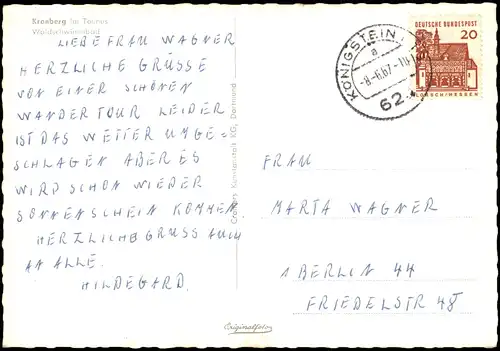 Kronberg im Taunus
Waldschwimmbad
LIEBE FRAU WAGNER
HERZLICHE GRÜSSE
VON EINER SCHÖNEN
WANDERTOUR LEIDER
IST DAS WETTER UMGE-
SCHLAGEN ABER ES
WIRD SCHON WIEDER
SONNENSCHEIN KOMMEN.
HERZLICHE GRUSS AUCH
AN ALLE.
HILDEGARD.
Cramers Kunstanstalt KG, Dortmund
Originalfoto
KÖNIGSTEIN
a
-8.-6.67.-10
62
DEUTSCHE BUNDESPOST
20
LORSCH/HESSEN
FRAU
MARTA WAGNER
1 BERLIN 44
FRIEDELSTR 48